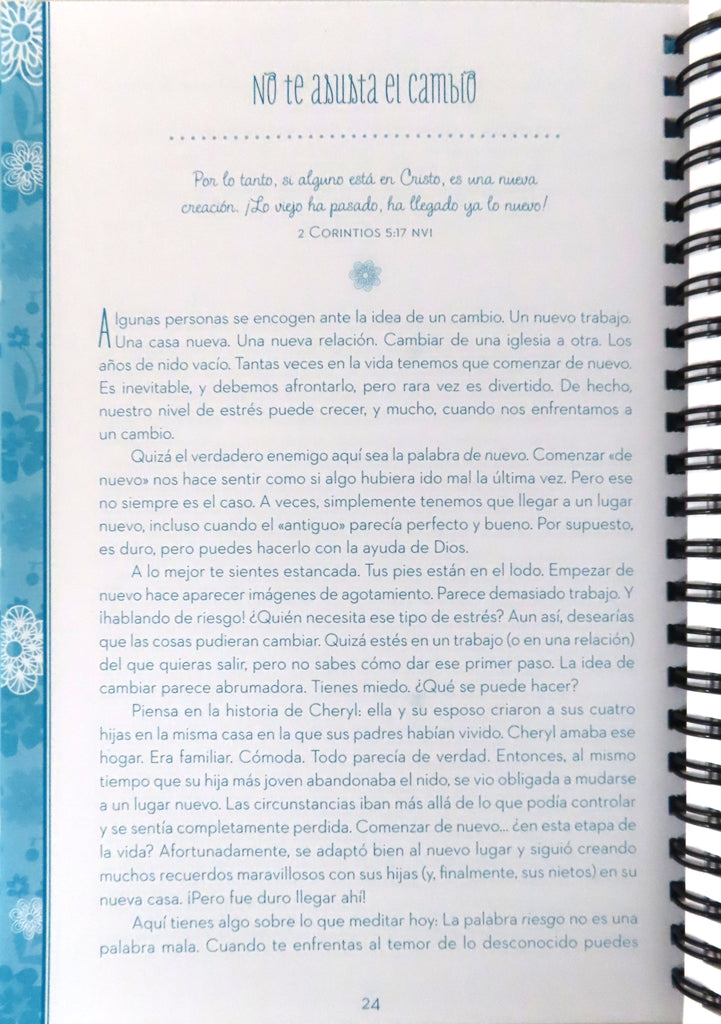 No te asusta el cambio
Por lo tanto, si alguno está en Cristo, es una nueva
creación. ¡Lo viejo ha pasado, ha llegado ya lo nuevo!
2 Corintios 5:17 NVI
Algunas personas se encogen ante la idea de un cambio. Un nuevo trabajo.
Una casa nueva. Una nueva relación. Cambiar de una iglesia a otra. Los
años de nido vacío. Tantas veces en la vida tenemos que comenzar de nuevo.
Es inevitable, y debemos afrontarlo, pero rara vez es divertido. De hecho,
nuestro nivel de estrés puede crecer, y mucho, cuando nos enfrentamos a
un cambio.
Quizá el verdadero enemigo aquí sea la palabra de nuevo. Comenzar «de
nuevo» nos hace sentir como si algo hubiera ido mal la última vez. Pero ese
no siempre es el caso. A veces, simplemente tenemos que llegar a un lugar
nuevo, incluso cuando el «antiguo» parecía perfecto y bueno. Por supuesto,
es duro, pero puedes hacerlo con la ayuda de Dios.
A lo mejor te sientes estancada. Tus pies están en el lodo. Empezar de
nuevo hace aparecer imágenes de agotamiento. Parece demasiado trabajo. Y
¡hablando de riesgo! ¿Quién necesita ese tipo de estrés? Aun así, desearías
que las cosas pudieran cambiar. Quizá estés en un trabajo (o en una relación)
del que quieras salir, pero no sabes cómo dar ese primer paso. La idea de
cambiar parece abrumadora. Tienes miedo. ¿Qué se puede hacer?
Piensa en la historia de Cheryl: ella y su esposo criaron a sus cuatro
hijas en la misma casa en la que sus padres habían vivido. Cheryl amaba ese
hogar. Era familiar. Cómoda. Todo parecía de verdad. Entonces, al mismo
tiempo que su hija más joven abandonaba el nido, se vio obligada a mudarse
a un lugar nuevo. Las circunstancias iban más allá de lo que podía controlar
y se sentía completamente perdida. Comenzar de nuevo... ¿en esta etapa de
la vida? Afortunadamente, se adaptó bien al nuevo lugar y siguió creando
muchos recuerdos maravillosos con sus hijas (y, finalmente, sus nietos) en su
nueva casa. ¡Pero fue duro llegar ahí!
Aquí tienes algo sobre lo que meditar hoy: La palabra riesgo no es una
palabra mala. Cuando te enfrentas al temor de lo desconocido puedes
24